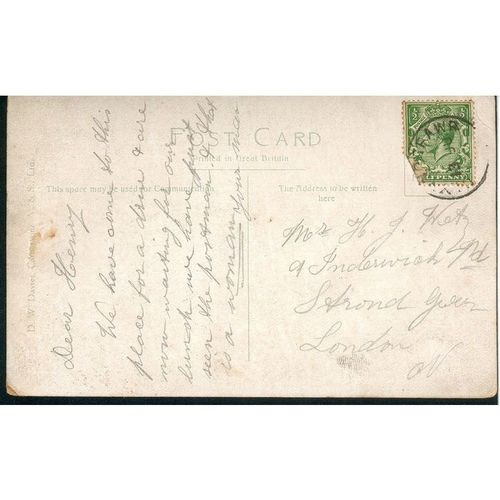 POST CARD
Printed in Great Britain
This space may be used for Communication.
The Address to be written
here
Dear Henry
We have come to this
place for a drive & are
now waiting for our
lunch we have just
seen the postman & that
is a woman your man
Mr H. J. Metz
9 Inderwick Rd
Stroud Green
London
N.
½ ½